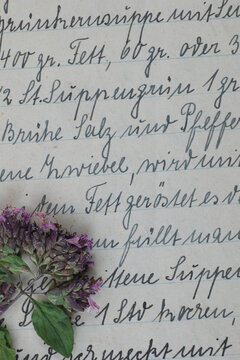 grünkernsuppe mit Sen
400 gr. Fett, 60 gr. oder 3
/2 St. Suppengrün 1 gr
Brühe Salz und Pfeffer
ene Zwiebel, wird mit
dem Fett geröstet es d
füllt man
ittene Suppen
1 Std kochen,
und schmeckt mit